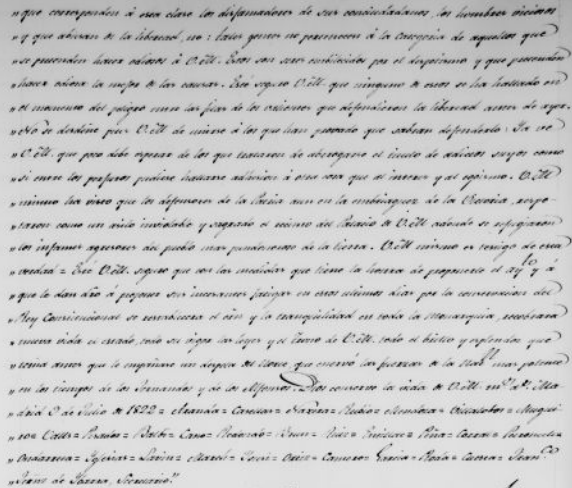 "que corresponden á esta clase los disfamadores de sus conciudadanos, los hombres viciosos
"y que abusan de la libertad, no: tales gentes no pertenecen á la categoria de aquellos que
"se pretenden hacer odiosos á V.M. Estos son seres embilecidos por el despotismo y que pretenden
"hacer odiosa la mejor de las causas. Esté seguro V.M. que ninguno de esos se ha hallado en
"el momento del peligro entre las filas de los valientes que defendieron la libertad antes de ayer.
"No se desdeñe pues V.M. de mirar á los que han probado que sabran defenderlo: Ya ve
"V.M. que poco debe esperar de los que trataron de abrogarse el titulo de adictos suyos como
"si entre los perjuros pudiese hallarse adhesion á otra cosa que al interes y al egoismo. V.M.
"mismo ha visto que los defensores de la Patria aun en la embriaguez de la Victoria, respe-
"taron como un asilo inviolable y sagrado el recinto del Palacio de V.M. adonde se refugiaron
"los infames agresores del pueblo mas pundonoroso de la tierra. V.M. mismo es testigo de esta
"verdad = Esté V.M. seguro que con las medidas que tiene la honra de proponerle el ayto. y á
"que le dan dro. á proponer sus incesantes fatigas en estos ultimos dias por la conservacion del
"Rey Constitucional se restablecerá el orden y la tranquilidad en toda la Monarquia, recobrará
"nueva vida el estado, todo su vigor las leyes y el trono de V.M. todo el brillo y esplendor que
"tenia antes que le imprimiese un despota del Norte, que enervó las fuerzas de la Nacn. mas potente
"en los tiempos de los Fernandos y de los Alfonsos. Dios conserve la vida de V.M. ms. as. Ma-
"drid 9 de Julio de 1822 = Aranda = Casillas = = Rubio = Mendoza = Villalobos =
" = = = = Cano = Redondo = = Ruiz = = Peña = =
" = Iglesias = = = = Ortiz = = Garcia = Roda = = Franco.
" de Ybarra, Secretario."